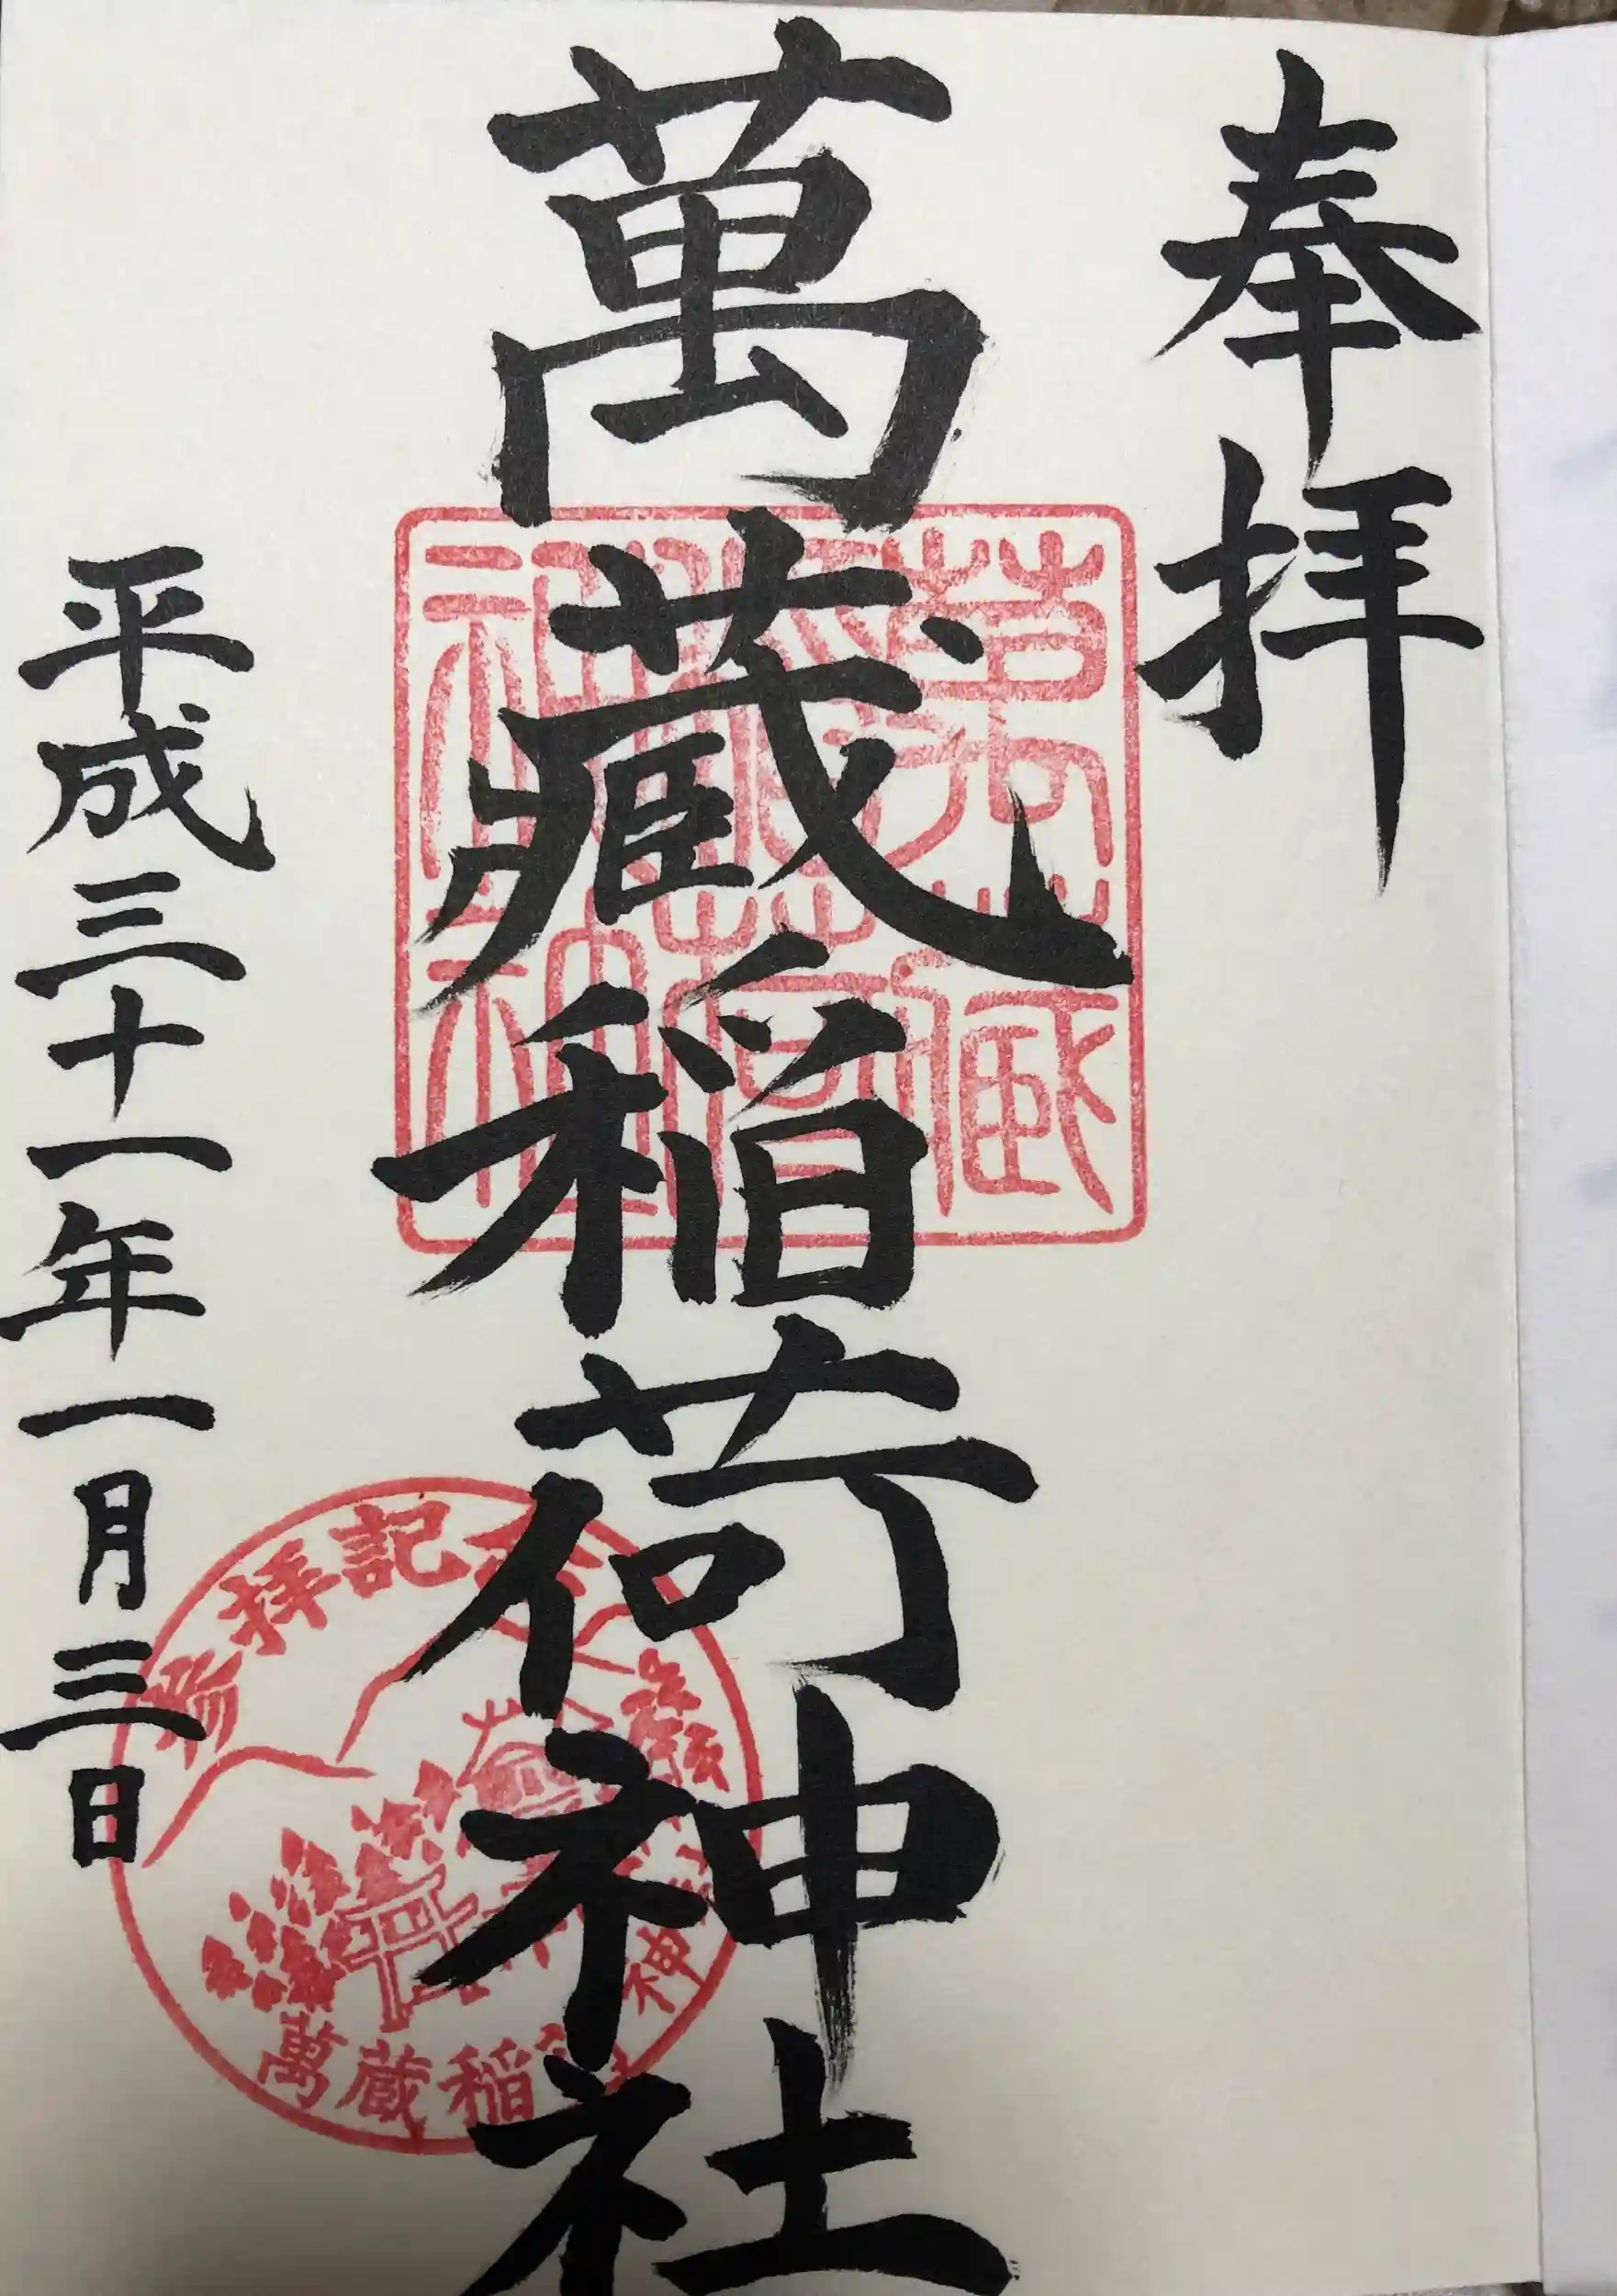 奉拝
萬蔵稲荷神社
平成三十一年一月三日
萬蔵稲荷神社
参拝記念
萬蔵稲荷神